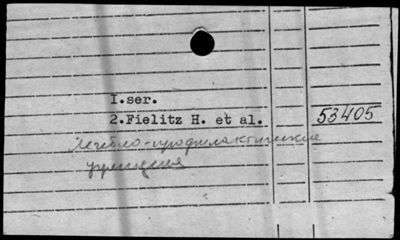 I.ser.
2.Fielitz H. et al. 53405
Лечебно-профилактические
учреждения